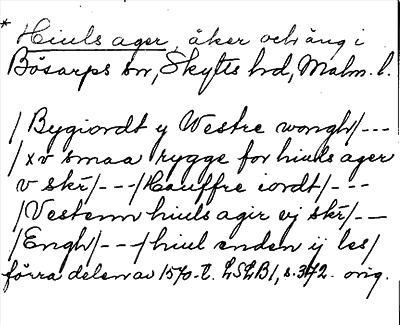 * Hiuls ager, åker och äng i
Bösarps sn, Skytts hd, Malm. l.
/ Bygiordt y Westre wongh/---
/ xv smaa rygge for hiuls ager
v skr/---/Hauffre iordt/---
/Vestenn hiuls agir vj skr/---
/Engh/---/hiul enden ij les/
förra delen av 1570-t. LSLB1, s.372. orig.